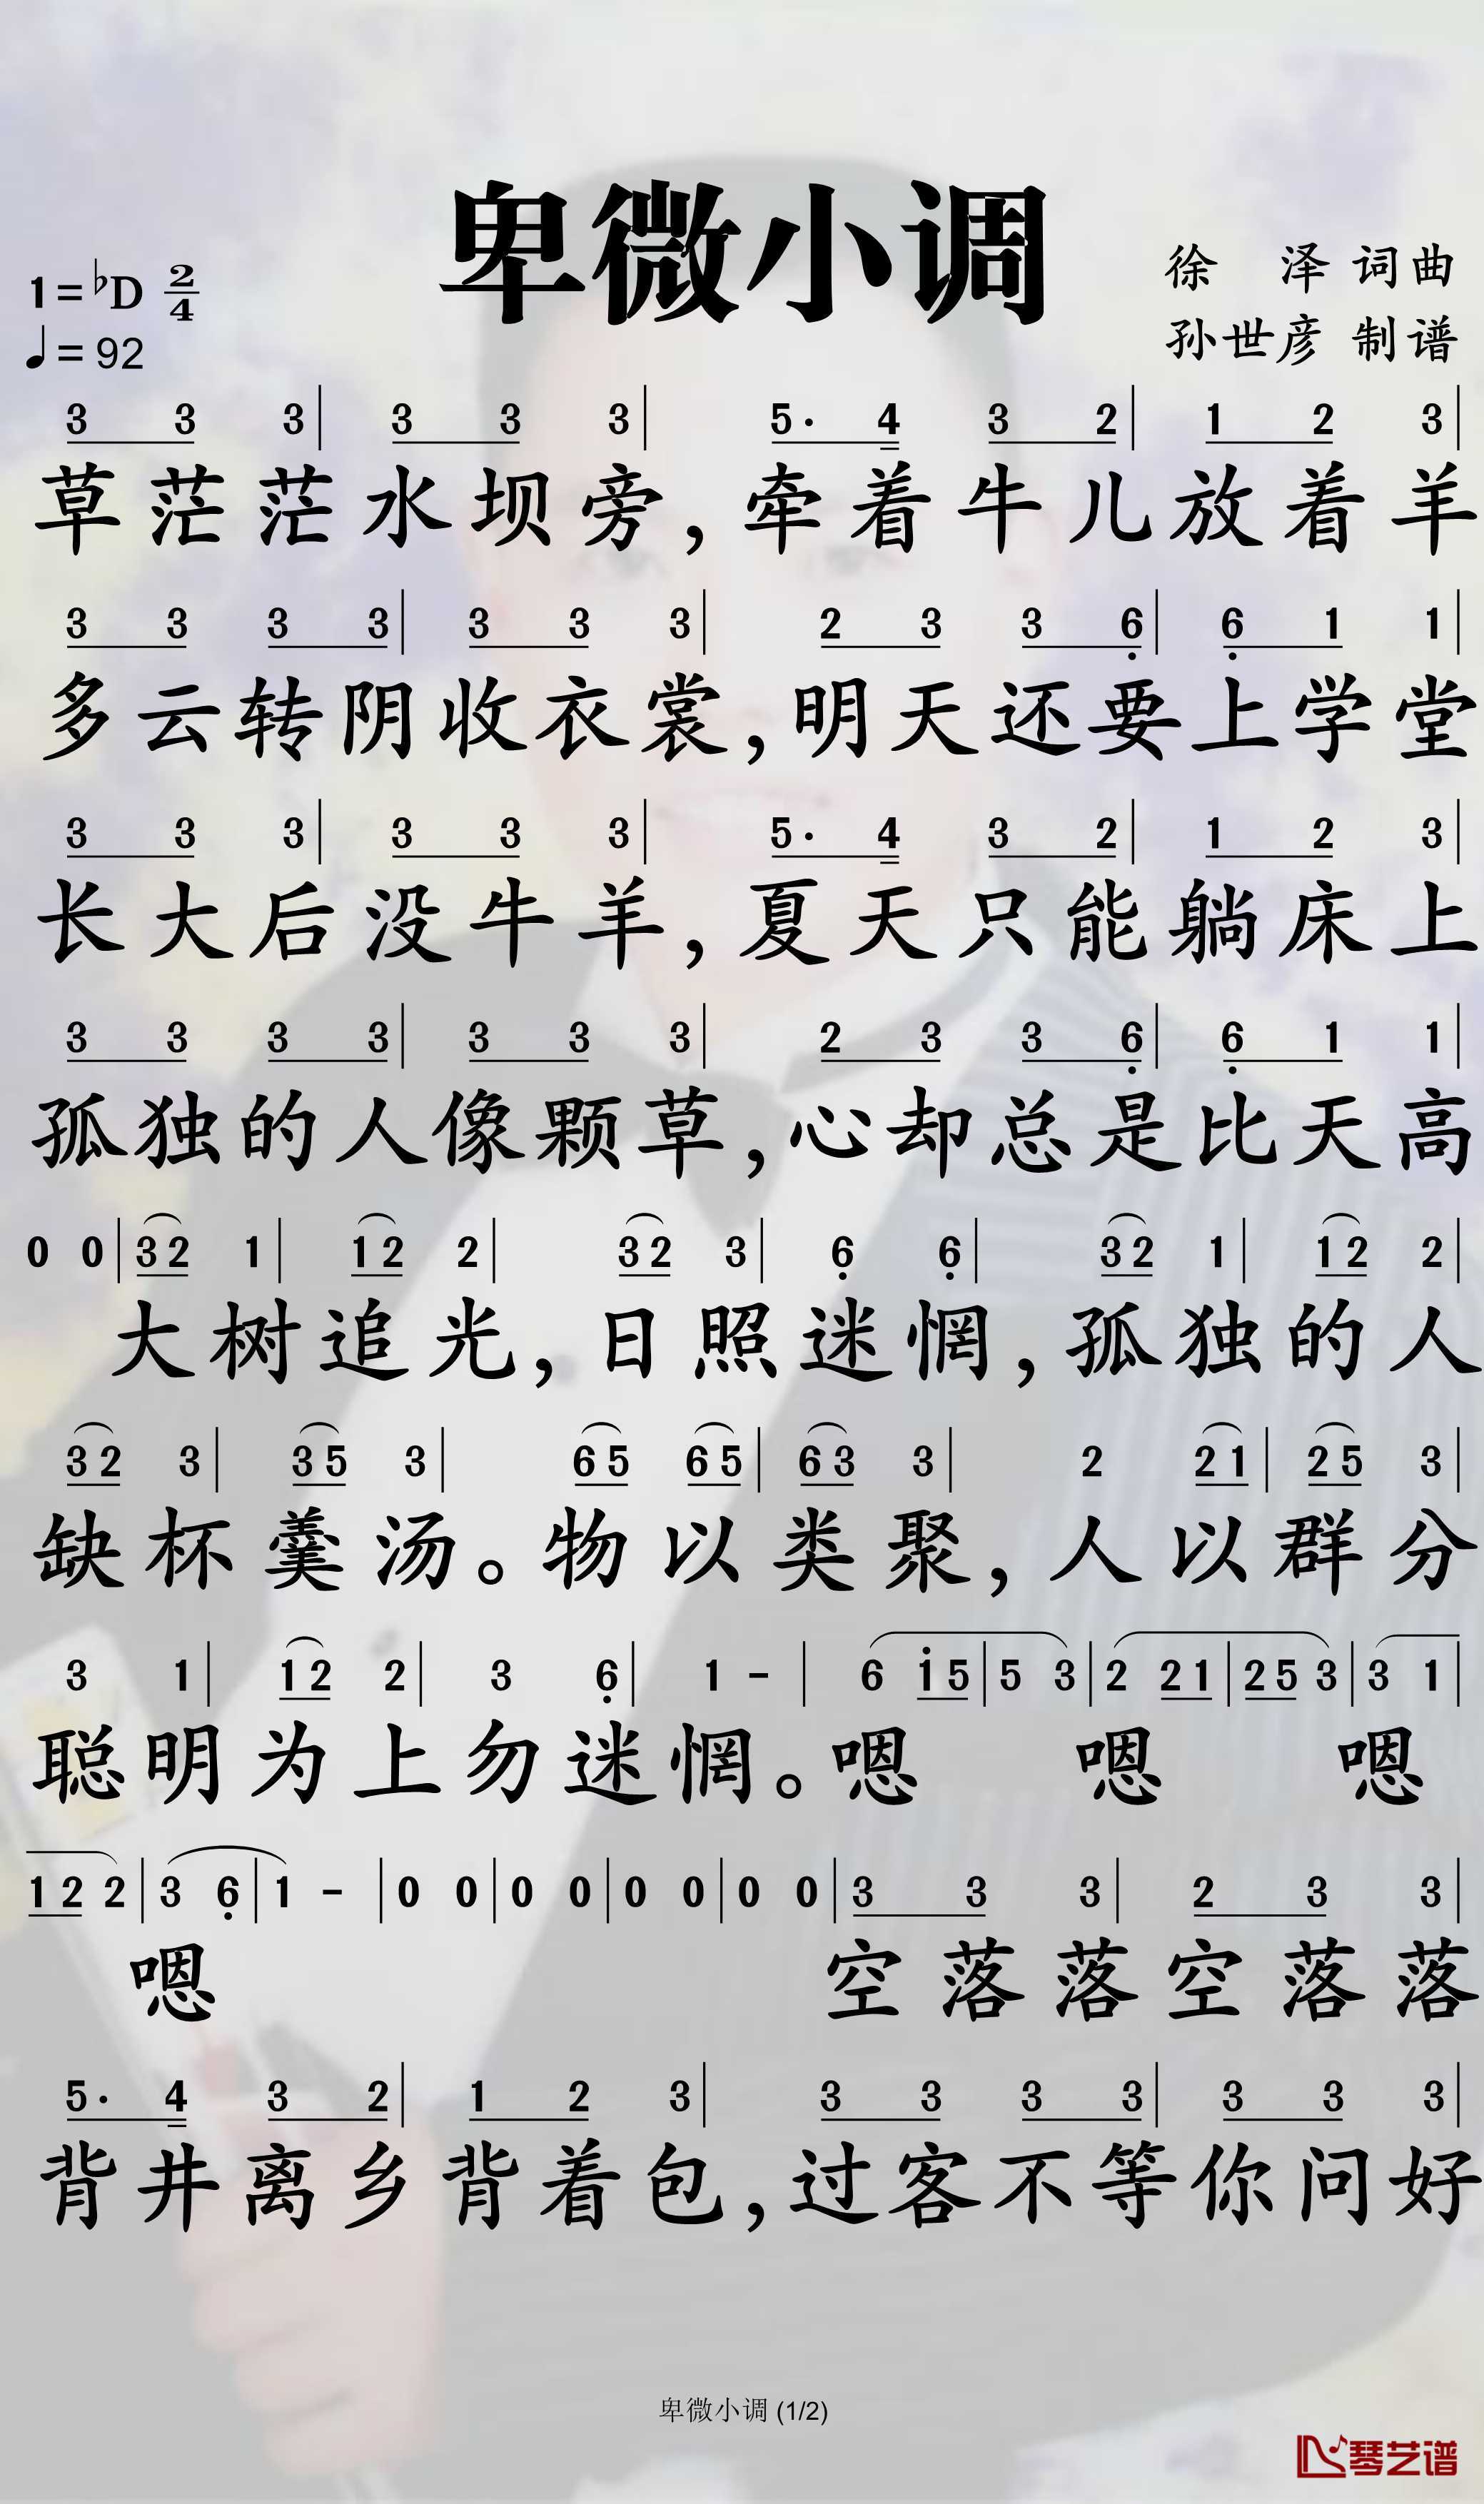 卑微小调
1=♭D 2/4
徐 泽 词曲
♩=92
孙世彦 制谱
3 3 3 | 3 3 3 | 5· 4 3 2 | 1 2 3 |
草茫茫水坝旁，牵着牛儿放着羊
3 3 3 3 | 3 3 3 | 2 3 3 6 | 6 1 1 |
多云转阴收衣裳，明天还要上学堂
3 3 3 | 3 3 3 | 5· 4 3 2 | 1 2 3 |
长大后没牛羊，夏天只能躺床上
3 3 3 3 | 3 3 3 | 2 3 3 6 | 6 1 1 |
孤独的人像颗草，心却总是比天高
0 0 | 3 2 1 | 1 2 2 | 3 2 3 | 6 6 | 3 2 1 | 1 2 2 |
大树追光，日照迷惘，孤独的人
3 2 3 | 3 5 3 | 6 5 6 5 | 6 3 3 | 2 2 1 | 2 5 3 |
缺杯羹汤。物以类聚，人以群分
3 1 | 1 2 2 | 3 6 | 1 - | 6 1 5 | 5 3 | 2 2 1 | 2 5 3 | 3 1 |
聪明为上勿迷惘。嗯 嗯 嗯
1 2 2 | 3 6 | 1 - | 0 0 | 0 0 | 0 0 | 0 0 | 3 3 3 | 2 3 3 |
嗯 空落落空落落
5· 4 3 2 | 1 2 3 | 3 3 3 3 | 3 3 3 |
背井离乡背着包，过客不等你问好
卑微小调 (1/2)
琴艺谱